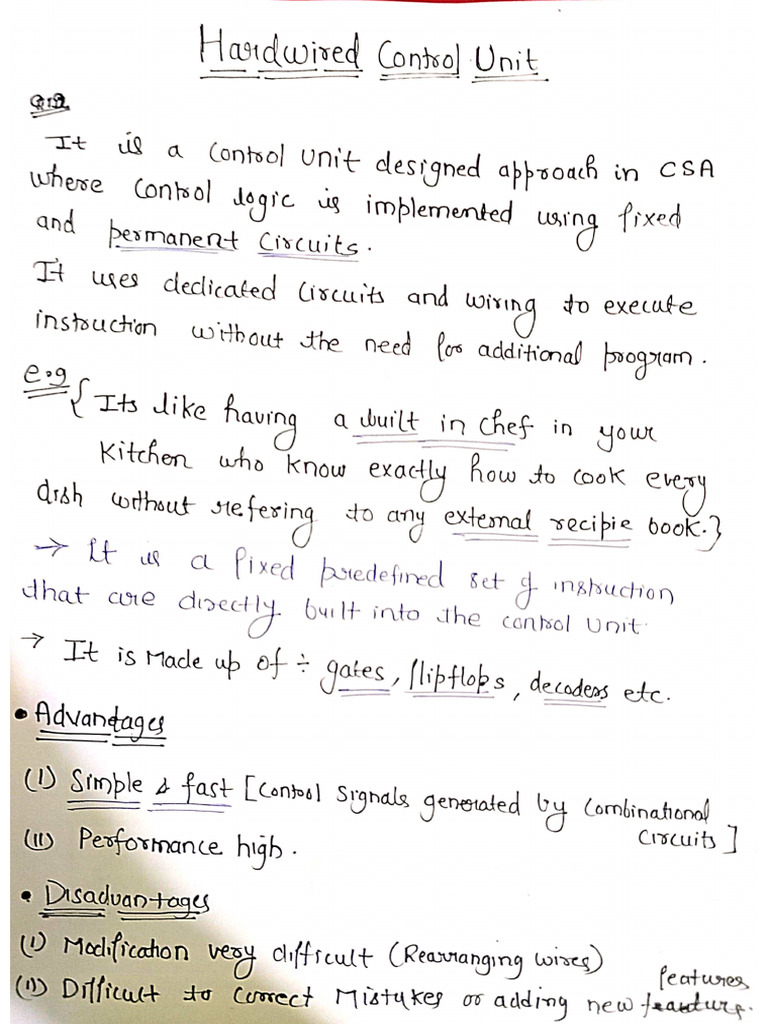 Hardwired Control Unit
It is a Control Unit designed approach in CSA
where Control logic is implemented using fixed
and permanent Circuits.
It uses dedicated Circuits and wiring to execute
instruction without the need for additional program.
e.g { Its like having a built in chef in your
Kitchen who know exactly how to cook every
dish without refering to any external recipie book.}
→ It is a fixed predefined set of instruction
that are directly built into the control Unit.
→ It is Made up of ÷ gates, flipflops, decoders etc.
• Advantages
(I) Simple & fast [Control Signals generated by Combinational
Circuits]
(II) Performance high.
• Disadvantages
(I) Modification very difficult (Rearranging wires)
features
(II) Difficult to Correct Mistakes or adding new